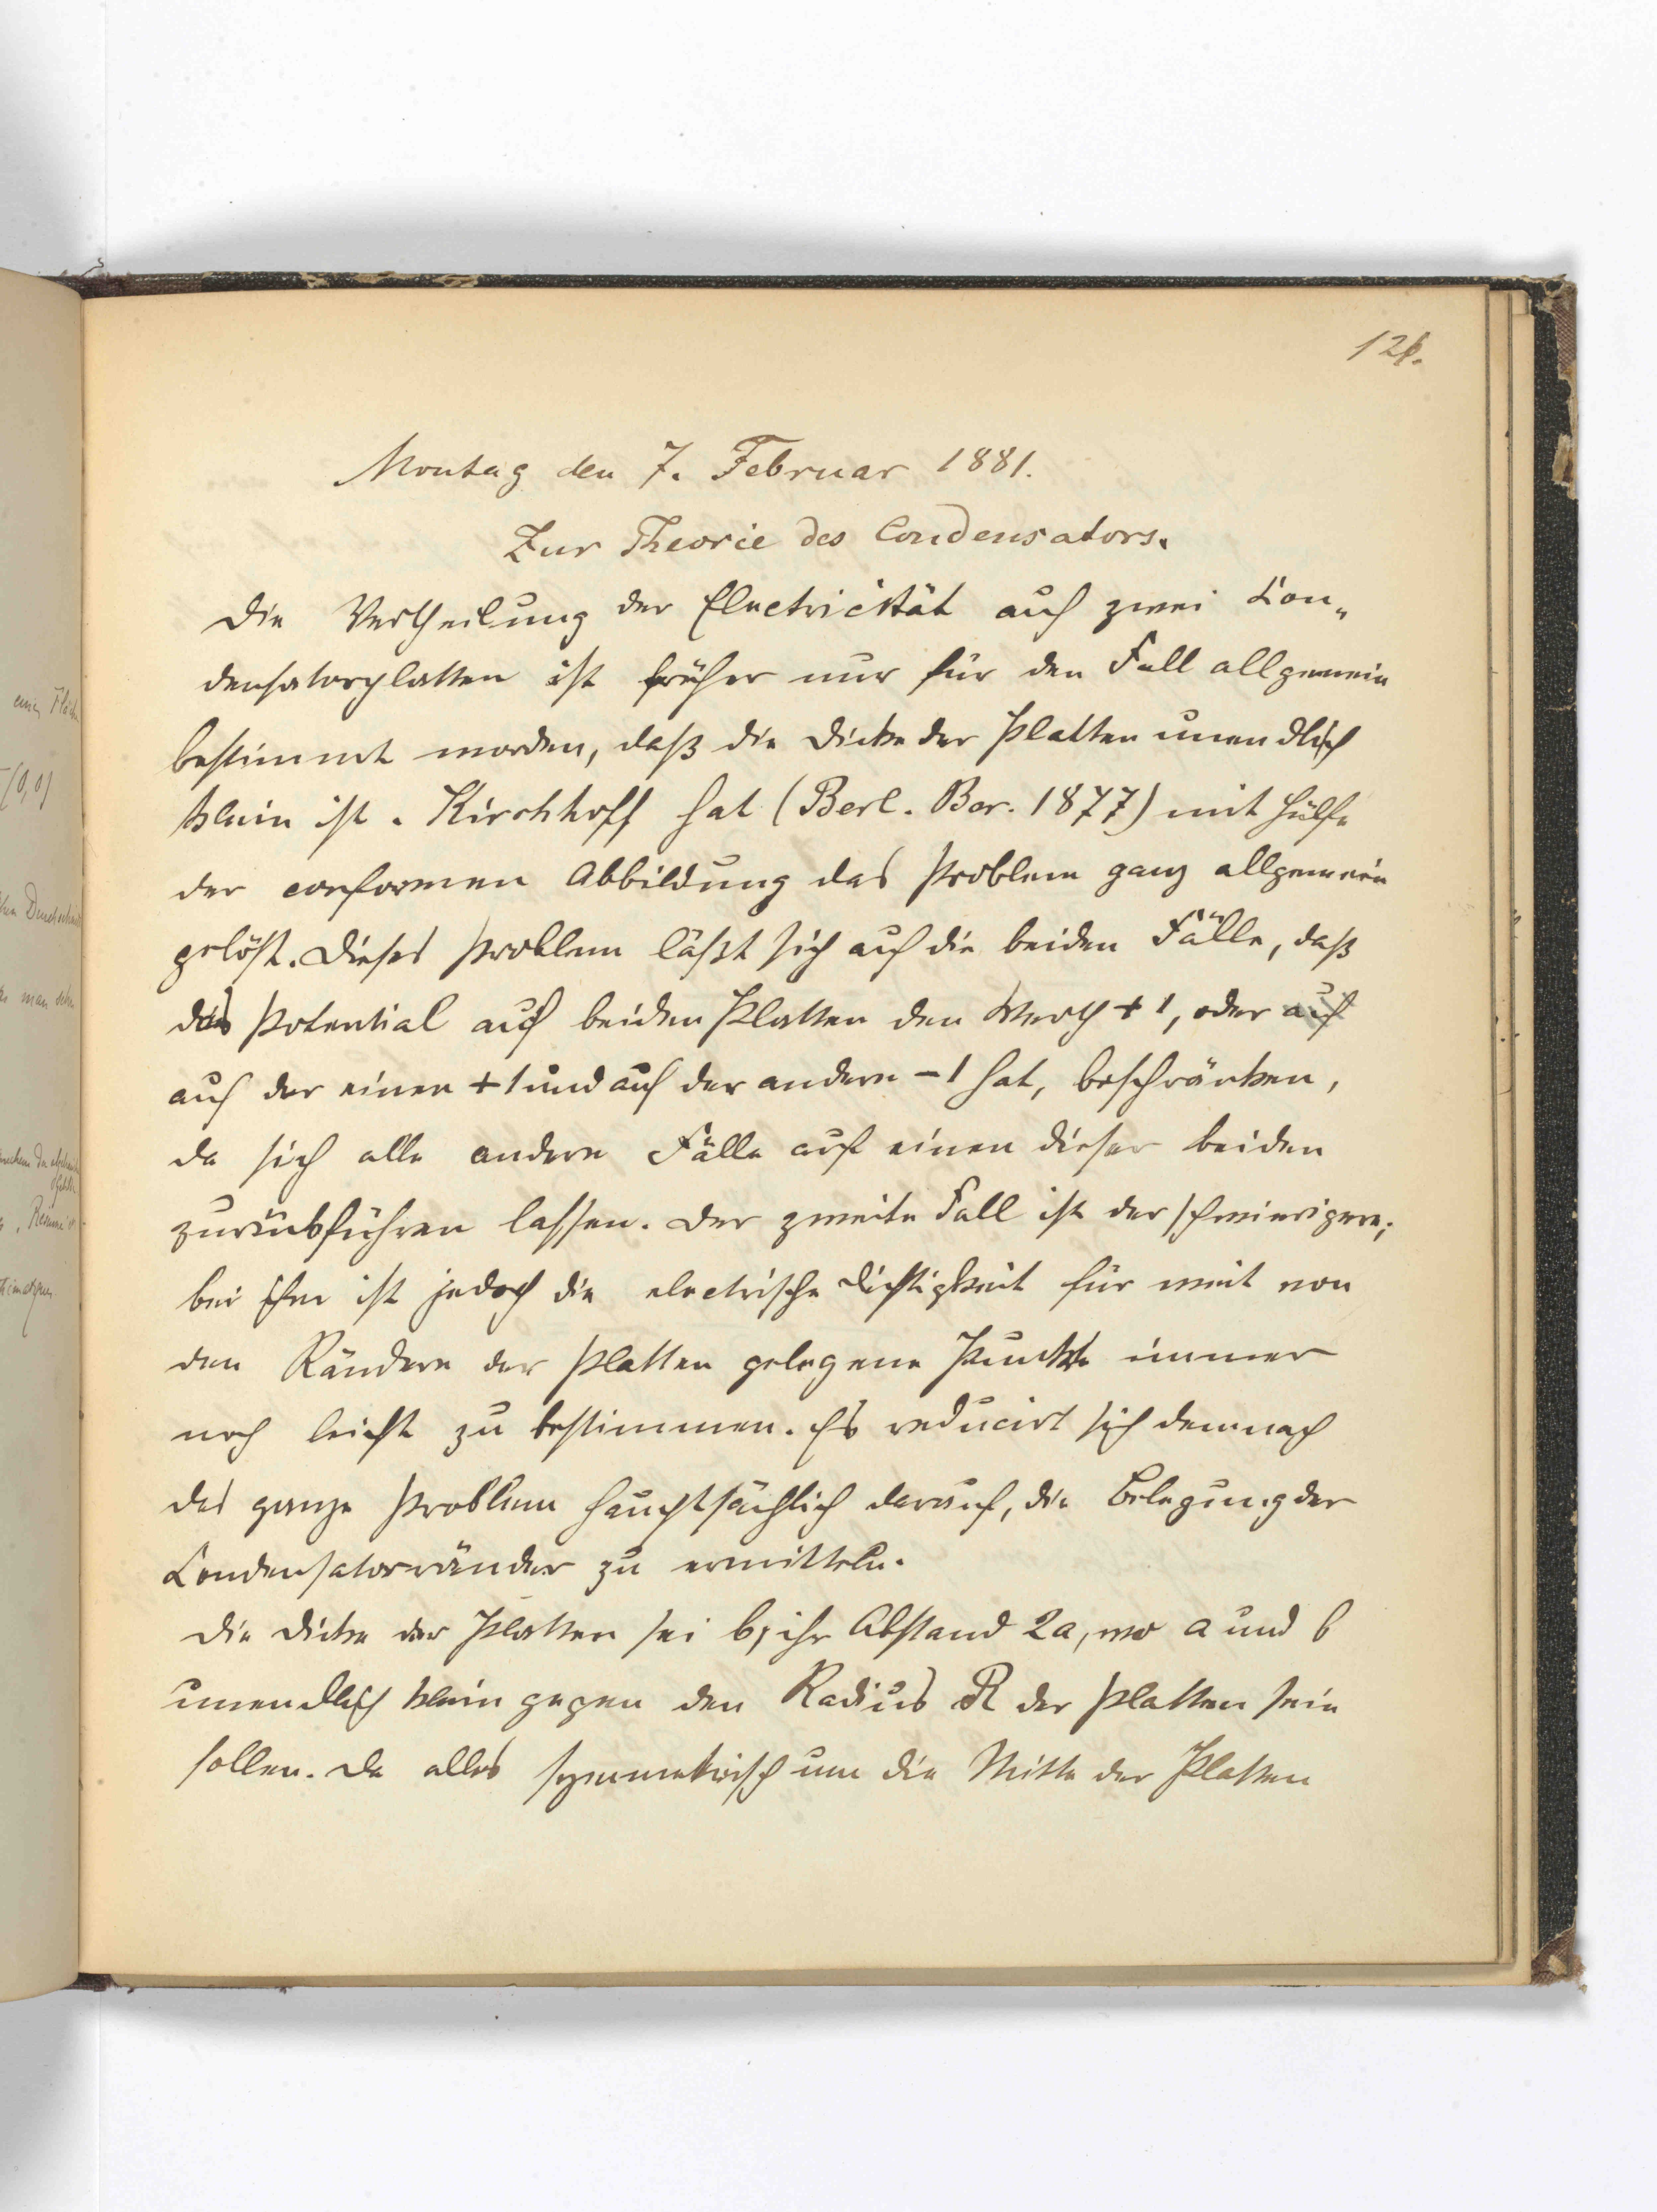 126.
Montag den 7. Februar 1881.
Zur Theorie des Condensators.
Die Vertheilung der Electricität auf zwei Con„
densatorplatten ist früher nur für den Fall allgemein
bestimmt worden, daß die Dicke der Platten unendlich
klein ist. Kirchhoff hat (Berl. Ber. 1877) mit Hülfe
der conformen Abbildung das Problem ganz allgemein
gelöst. Dieses Problem läßt sich auf die beiden Fälle, daß
das Potential auf beiden Platten den Werth +1, oder auf
auf der einen +1 und auf der andern -1 hat, beschränken,
da sich alle andern Fälle auf einen dieser beiden
zurückführen lassen. Der zweite Fall ist der schwierigere;
bei ihm ist jedoch die electrische Dichtigkeit für weit von
den Rändern der Platten gelegene Punkte immer
noch leicht zu bestimmen. Es reducirt sich demnach
das ganze Problem hauptsächlich darauf, die Belegung der
Condensatorränder zu ermitteln.
Die Dicke der Platten sei b, ihr Abstand 2a, wo a und b
unendlich klein gegen den Radius R der Platten sein
sollen. Da alles symmetrisch um die Mitte der Platten